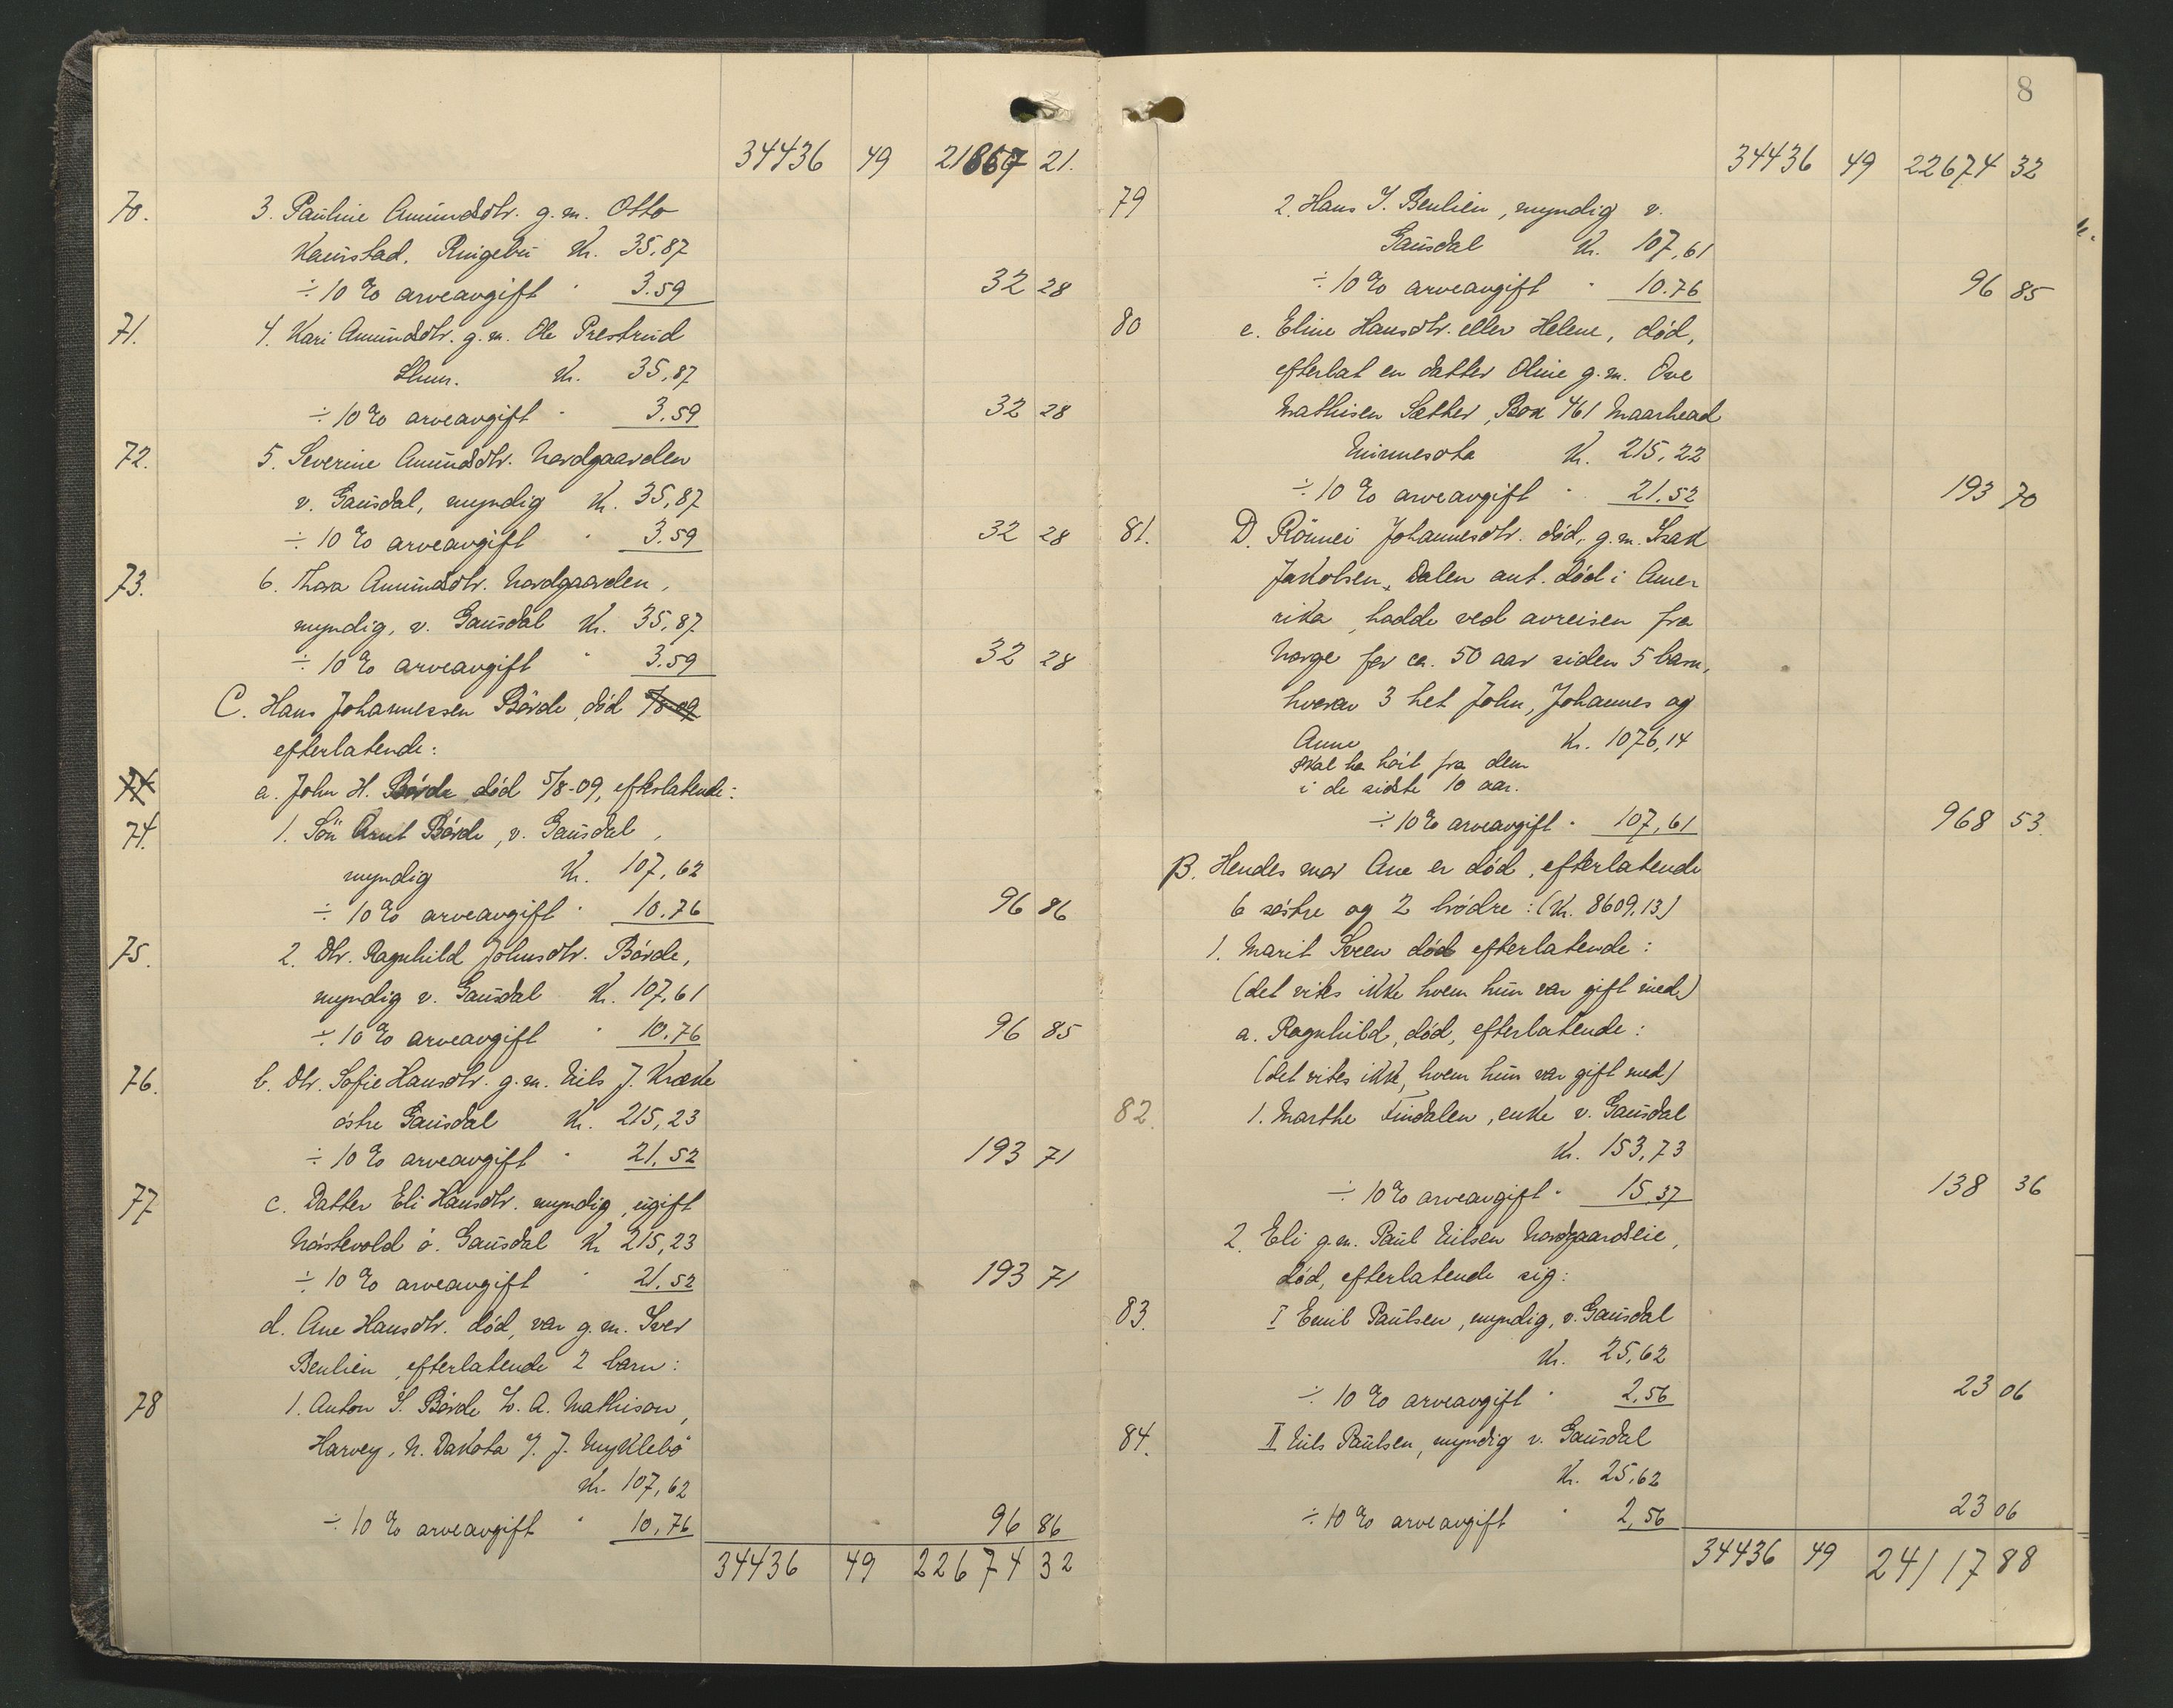 34436 49 21867 21.
70. 3. Pauline Amundsdtr. g.m. Otto
Kaurstad. Ringebu Kr. 35,87
÷ 10 % arveavgift " 3.59 32 28
71. 4. Kari Amundsdtr. g.m. Ole Prestrud
Lhmr. Kr. 35,87
÷ 10 % arveavgift " 3.59 32 28
72. 5. Severine Amundsdtr. Nordgaarden
v. Gausdal, myndig Kr. 35,87
÷ 10 % arveavgift " 3.59 32 28
73. 6. Thora Amundsdtr. Nordgaarden,
myndig, v. Gausdal Kr. 35,87
÷ 10 % arveavgift " 3.59 32 28
C. Hans Johannessen Börde, död 5/8-09
efterlatende:
74 a. John H. Börde död 5/8-09, efterlatende:
74. 1. Sön Arnt Börde, v. Gausdal,
myndig Kr. 107,62
÷ 10 % arveavgift " 10.76 96 86
75. 2. Dtr. Ragnhild Johnsdtr. Börde,
myndig v. Gausdal Kr. 107,61
÷ 10 % arveavgift " 10.76 96 85
76. b. Dtr. Sofie Hansdtr. g.m. Nils J. Kræke
östre Gausdal Kr. 215,23
÷ 10 % arveavgift " 21.52 193 71
77 c. Datter Eli Hansdtr. myndig, ugift
Nöstevold ö. Gausdal Kr 215,23
÷ 10 % arveavgift " 21.52 193 71
d. Ane Hansdtr. död, var g.m. Iver
Benlien, efterlatende 2 barn:
78 1. Anton I. Börde L. A. Mathison,
Harvey, N. Dakota J. Myklebö
Kr. 107,62
÷ 10 % arveavgift " 10,76 96 86
34436 49 22674 32
8
34436 49 22674 32
79 2. Hans I. Benlien, myndig v.
Gausdal Kr. 107,61
÷ 10 % arveavgift " 10.76 96 85
80 e. Eline Hansdtr. eller Helene, död,
efterlat en datter Oline g.m. Ove
Mathisen Sæther, Box 461 Maarhead
Minnesota Kr. 215,22
÷ 10 % arveavgift " 21.52 193 70
81. D. Rönnei Johannesdtr. död, g.m. Isak
Jakobsen, Dalen ant. död i Amer
rika, hadde ved avreisen fra
Norge for ca. 50 aar siden 5 barn,
hvorav 3 het John, Johannes og
Anne Kr. 1076,14
Skal ha hört fra dem
i de sidste 10 aar.
÷ 10 % arveavgift " 107,61 968 53.
B. Hendes mor Ane er död, efterlatende
6 söstre og 2 brödre: (Kr. 8609,13)
1. Marit Sveen död efterlatende:
(det vites ikke hvem hun var gift med)
a. Ragnhild, död, efterlatende:
(det vites ikke, hvem hun var gift med)
82. 1. Marthe Findalen, enke v. Gausdal
Kr. 153,73
÷ 10 % arveavgift " 15,37 138 36
2. Eli g.m. Paul Nilsen Nordgaardseie,
död, efterlatende sig:
83. I Emil Paulsen, myndig, v. Gausdal
Kr. 25,62
÷ 10 % arveavgift " 2,56 23 06
84. II Nils Paulsen, myndig v. Gausdal
Kr. 25,62
÷ 10 % arveavgift " 2,56 23 06
34436 49 24117 88